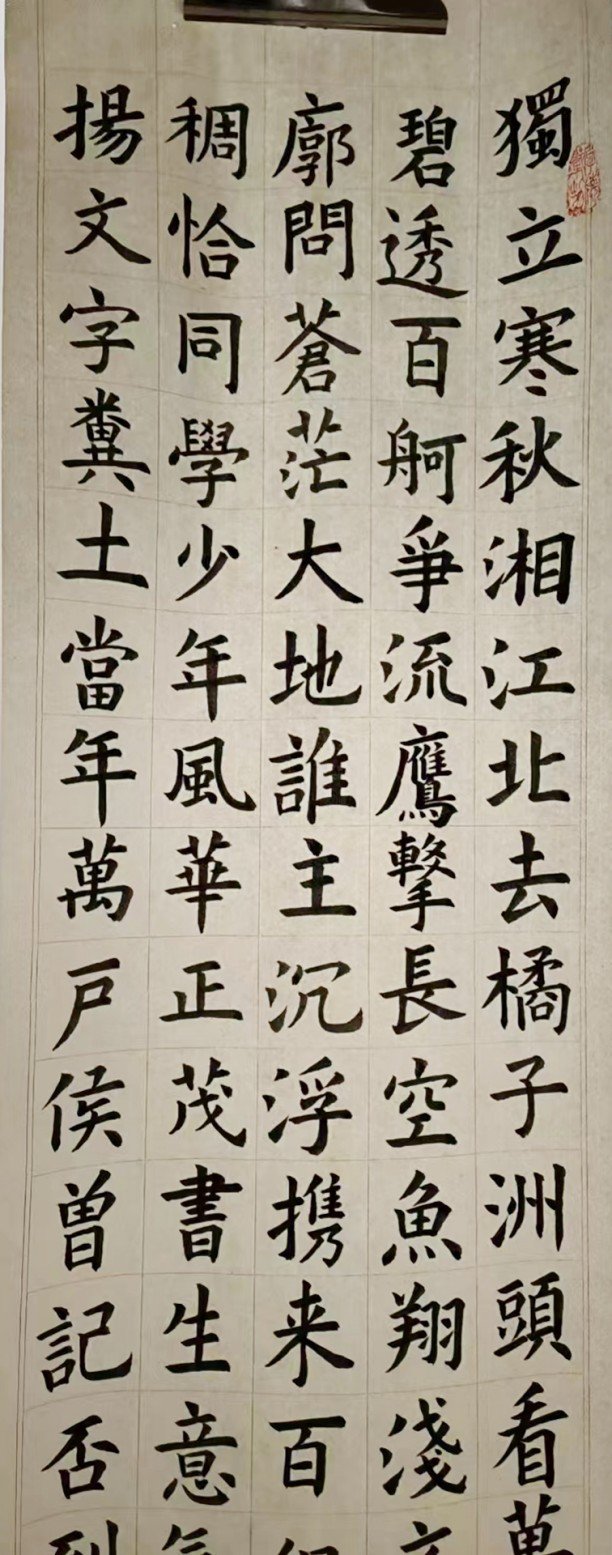 獨立寒秋湘江北去橘子洲頭看萬
碧透百舸爭流鷹擊長空魚翔淺
廓問蒼茫大地誰主沉浮携来百
稠恰同學少年風華正茂書生意
揚文字糞土當年萬戶侯曾記否